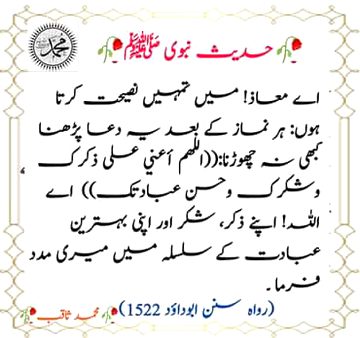 حدیث نبوی ﷺ
اے معاذ! میں تمہیں نصیحت کرتا
ہوں: ہر نماز کے بعد یہ دعا پڑھنا
کبھی نہ چھوڑنا:((اللهم أعني على ذكرك
وشكرك وحسن عبادتك)) اے
اللہ! اپنے ذکر، شکر اور اپنی بہترین
عبادت کے سلسلہ میں میری مدد
فرما۔
(رواہ سنن ابوداؤد 1522)
محمد ثاقب